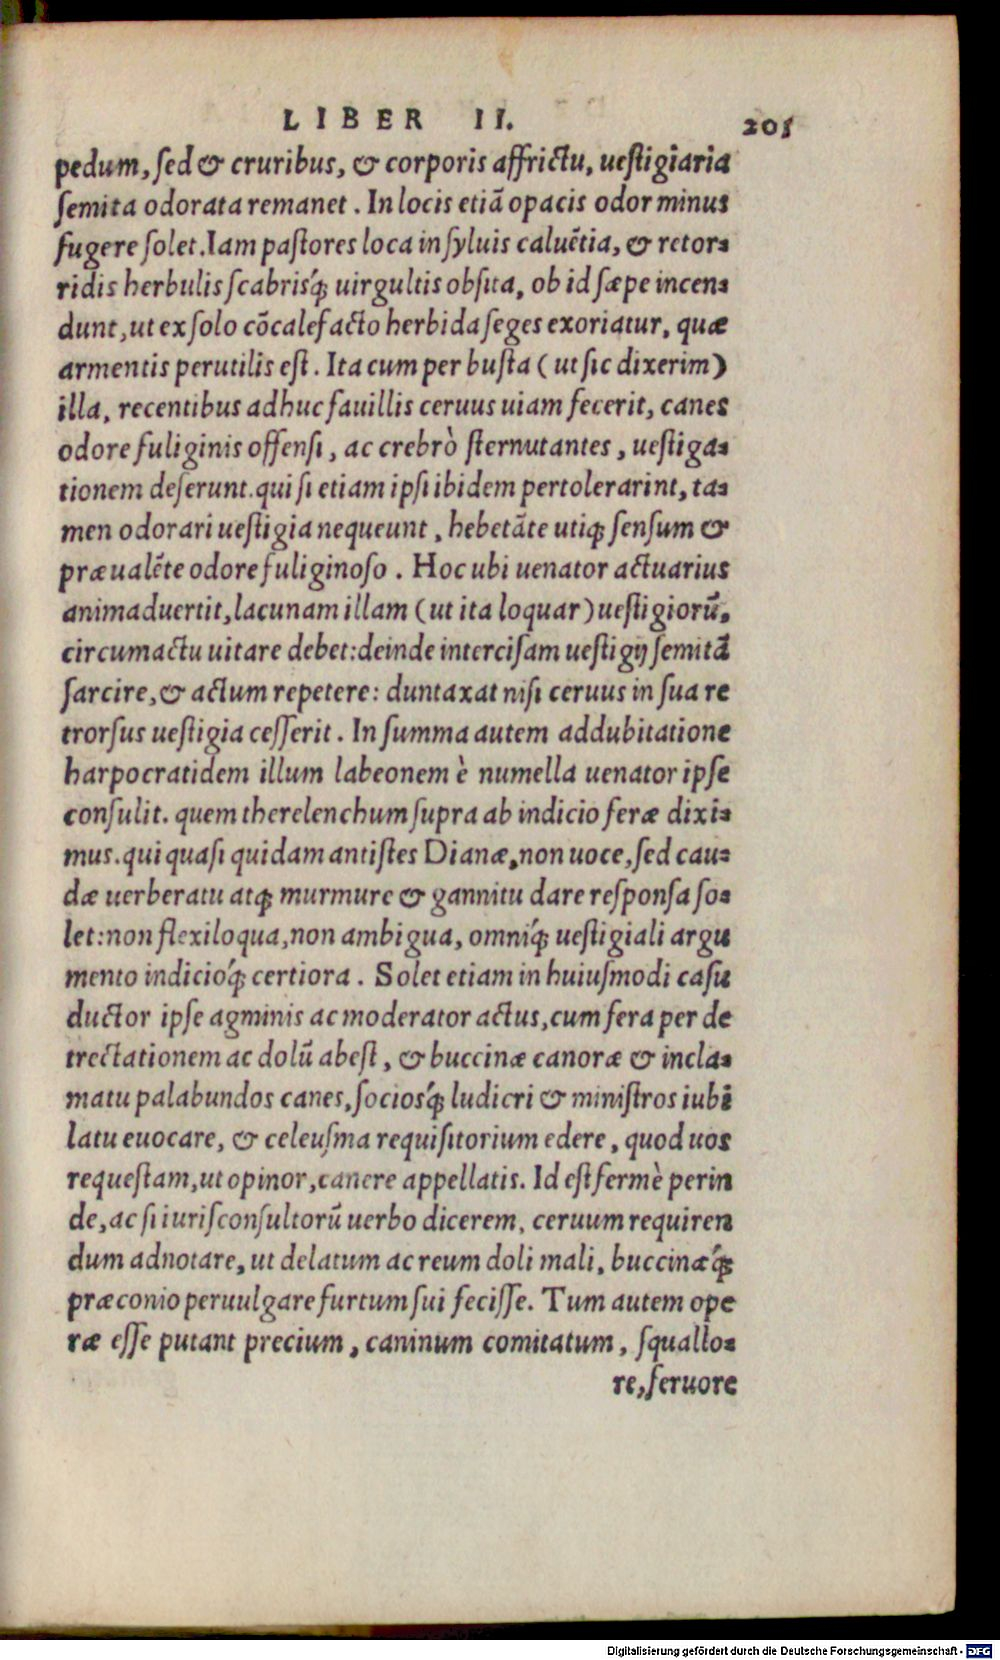 LIBER II. 205
pedum, sed & cruribus, & corporis affrictu, uestigiaria
semita odorata remanet. In locis etiã opacis odor minus
fugere solet. Iam pastores loca in syluis caluẽtia, & retor-
ridis herbulis scabrisq́; uirgultis obsita, ob id sæpe incen-
dunt, ut ex solo cõcalefacto herbida seges exoriatur, quæ
armentis perutilis est. Ita cum per busta (ut sic dixerim)
illa, recentibus adhuc fauillis ceruus uiam fecerit, canes
odore fuliginis offensi, ac crebrò sternutantes, uestiga-
tionem deserunt. qui si etiam ipsi ibidem pertolerarint, ta-
men odorari uestigia nequeunt, hebetãte utiq; sensum &
præualẽte odore fuliginoso. Hoc ubi uenator actuarius
animaduertit, lacunam illam (ut ita loquar) uestigiorũ,
circumactu uitare debet: deinde intercisam uestigij semitã
sarcire, & actum repetere: duntaxat nisi ceruus in sua re
trorsus uestigia cesserit. In summa autem addubitatione
harpocratidem illum labeonem è numella uenator ipse
consulit. quem therelenchum supra ab indicio feræ dixi-
mus. qui quasi quidam antistes Dianæ, non uoce, sed cau-
dæ uerberatu atq; murmure & gannitu dare responsa so-
let: non flexiloqua, non ambigua, omniq́; uestigiali argu
mento indicioq́; certiora. Solet etiam in huiusmodi casu
ductor ipse agminis ac moderator actus, cum fera per de
trectationem ac dolũ abest, & buccinæ canoræ & incla-
matu palabundos canes, sociosq́; ludicri & ministros iubi
latu euocare, & celeusma requisitorium edere, quod uos
requestam, ut opinor, canere appellatis. Id est fermè perin
de, ac si iurisconsultorũ uerbo dicerem, ceruum requiren
dum adnotare, ut delatum ac reum doli mali, buccinæq́;
præconio peruulgare furtum sui fecisse. Tum autem ope
ræ esse putant precium, caninum comitatum, squallo-
re, feruore
Digitalisierung gefördert durch die Deutsche Forschungsgemeinschaft - DFG